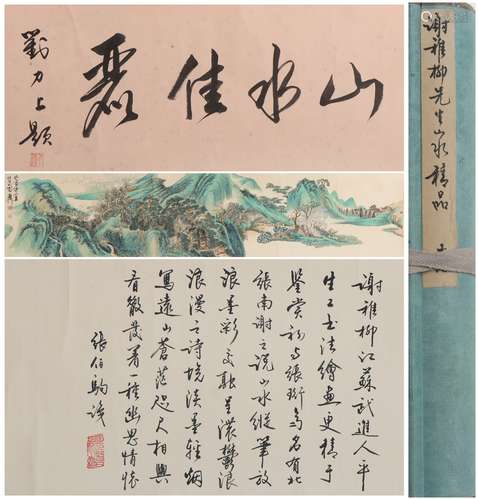 山水佳麗
劉力上題
謝稚柳先生山水精品
謝稚柳江蘇武進人平
生工书法繪畫更精于
鑒赏初与張珩齊名有北
張南謝之说山水縱筆放
浪墨彩交融呈濃鬱浪
浪漫之詩境淡墨輕烟
寫遠山蒼茫咫尺相與
看散發著一種幽思情懷
張伯駒識